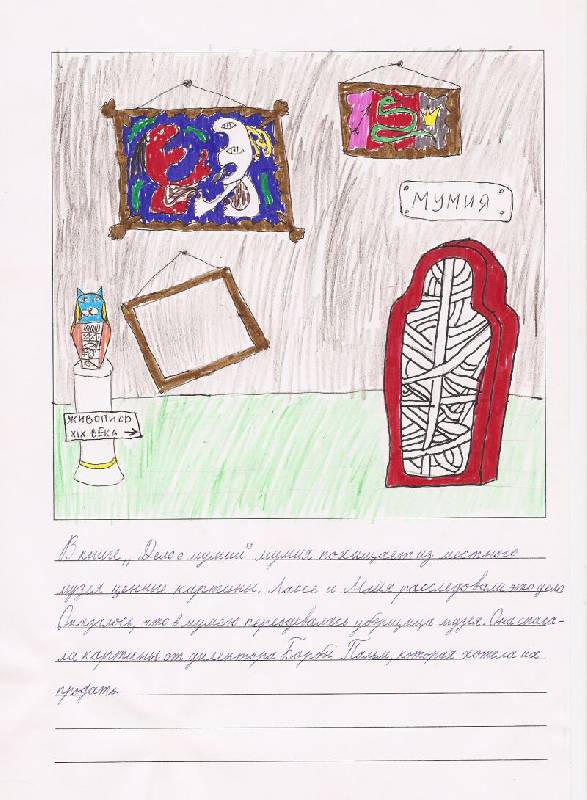 МУМИЯ
ЖИВОПИСЬ
XIX ВЕКА
В книге „Дело о мумии" мумия похищает из местного
музея ценные картины. Лассе и Майя расследовали это дело.
Оказалось, что в мумию переодевалась уборщица музея. Она спаса-
ла картины от директора Барбы Пальм, которая хотела их
продать.